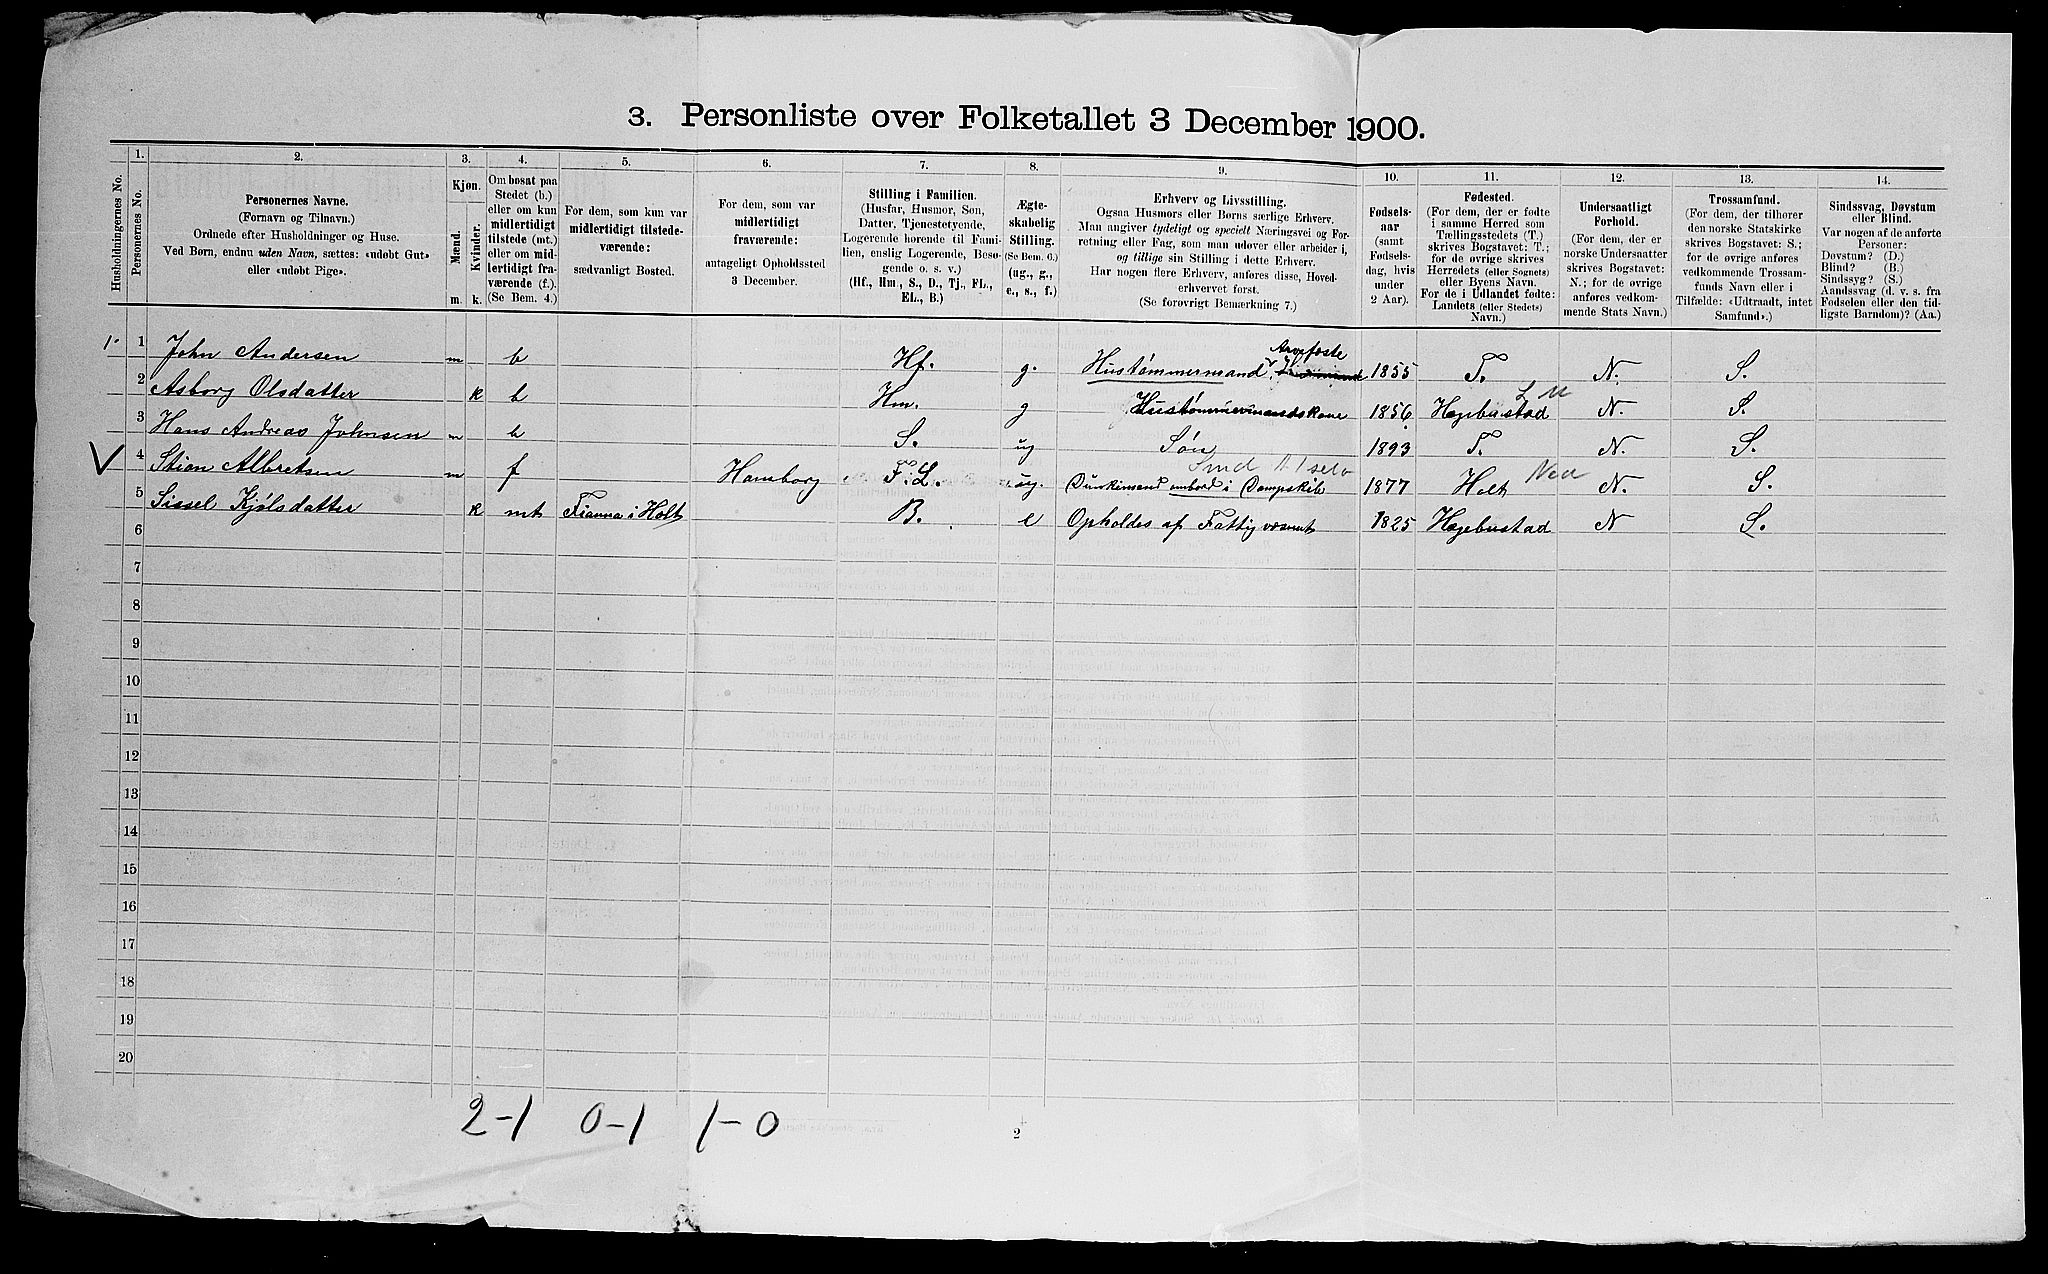 3. Personliste over Folketallet 3 December 1900.
Husholdningernes No.
1.
Personernes No.
2.
Personernes Navne.
(Fornavn og Tilnavn.)
Ordnede efter Husholdninger og Huse.
Ved Børn, endnu uden Navn, sættes: «udøbt Gut»
eller «udøbt Pige».
3.
Kjøn.
Mænd.
Kvinder.
m. k.
4.
Om bosat paa
Stedet (b.)
eller om kun
midlertidigt
tilstede (mt.)
eller om mid-
lertidigt fra-
værende (f.).
(Se Bem. 4.)
5.
For dem, som kun var
midlertidigt tilstede-
værende:
sædvanligt Bosted.
6.
For dem, som var
midlertidigt
fraværende:
antageligt Opholdssted
3 December.
7.
Stilling i Familien.
(Husfar, Husmor, Søn,
Datter, Tjenestetyende,
Logerende hørende til Fami-
lien, enslig Logerende, Besø-
gende o. s. v.)
(Hf., Hm., S., D., Tj., FL.,
EL., B.)
8.
Ægte-
skabelig
Stilling.
(Se Bem. 6.)
(ug., g.,
e., s., f.)
9.
Erhverv og Livsstilling.
Ogsaa Husmors eller Børns særlige Erhverv.
Man angiver tydeligt og specielt Næringsvei og For-
retning eller Fag, som man udøver eller arbeider i,
og tillige sin Stilling i dette Erhverv.
Har nogen flere Erhverv, anføres disse, Hoved-
erhvervet først.
(Se forøvrigt Bemærkning 7.)
10.
Fødsels-
aar
(samt
Fødsels-
dag, hvis
under
2 Aar).
11.
Fødested.
(For dem, der er fødte
i samme Herred som
Tællingsstedets (T.)
skrives Bogstavet: T.;
for de øvrige skrives
Herredets (eller Sognets)
eller Byens Navn.
For de i Udlandet fødte:
Landets (eller Stedets)
Navn.)
12.
Undersaatligt
Forhold.
(For dem, der er
norske Undersaatter
skrives Bogstavet:
N.; for de øvrige
anføres vedkom-
mende Stats Navn.)
13.
Trossamfund.
(For dem, der tilhører
den norske Statskirke
skrives Bogstavet: S.;
for de øvrige anføres
vedkommende Trossam-
funds Navn eller i
Tilfælde: «Udtraadt, intet
Samfund».)
14.
Sindssvag, Døvstum
eller Blind.
Var nogen af de anførte
Personer:
Døvstum? (D.)
Blind? (B.)
Sindssyg? (S.)
Aandssvag (d. v. s. fra
Fødselen eller den tid-
ligste Barndom)? (Aa.)
Arvefæste
1. 1 John Andersen m b Hf. g. Hustømmermand, 1855 T. N. S.
2 Asborg Olsdatter k b Hm. g Hustømmermandskone 1856 Hægebustad L M N. S.
3 Hans Andreas Johnsen m b S. ug Søn 1893 T. N. S.
4 Stian Albretsen m f Hamborg F.L. ug. ombord i Dampskib 1877 Holt Ned N. S.
5 Sissel Kjølsdatter k mt Fianna i Holt B. e Opholdes af Fattigvæsenet 1825 Hægebustad N S.
6
7
8
9
10
11
12
13
14
15
16
17
18
19
20
2-1 0-1 1-0
2